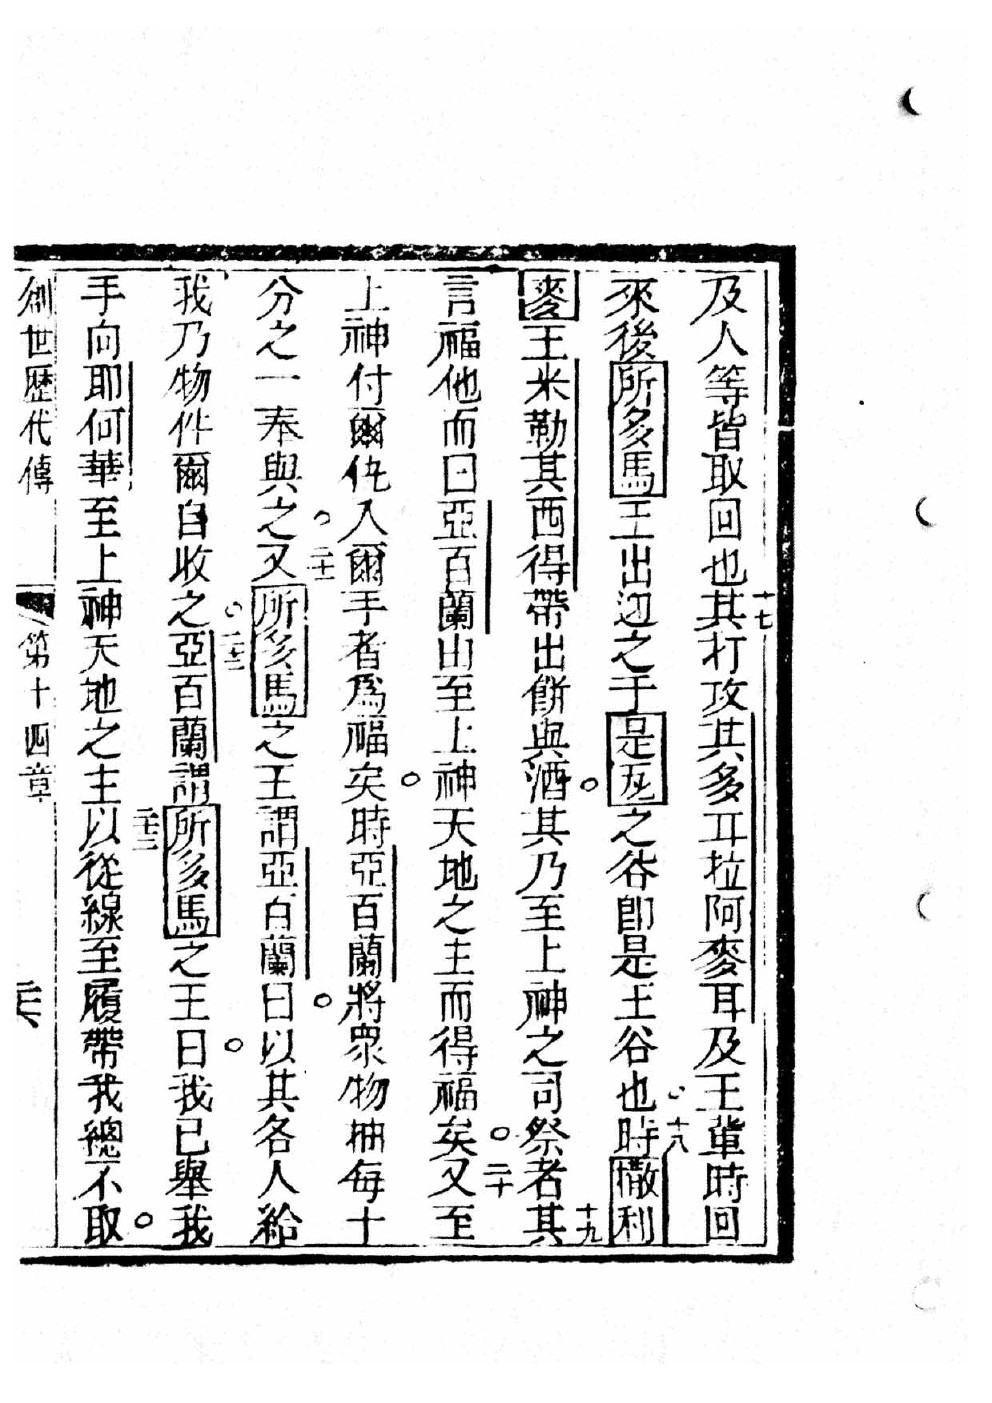 及人等皆取回也十七其打攻其多耳拉阿麥耳及王輩時回
來後所多馬王出迎之于是瓦之谷即是王谷也十八時撒利
麥王米勒其西得帶出餅與酒其乃至上神之司祭者十九其
言福他而曰亞百蘭由至上神天地之主而得福矣二十又至
上神付爾仇入爾手者為福矣時亞百蘭將眾物抽每十
分之一奉與之二十一又所多馬之王謂亞百蘭曰以其各人給
我乃物件爾自收之二十二亞百蘭謂所多馬之王曰我已舉我
手向耶何華至上神天地之主二十三以從線至履帶我總不取
創世歷代傳 第十四章